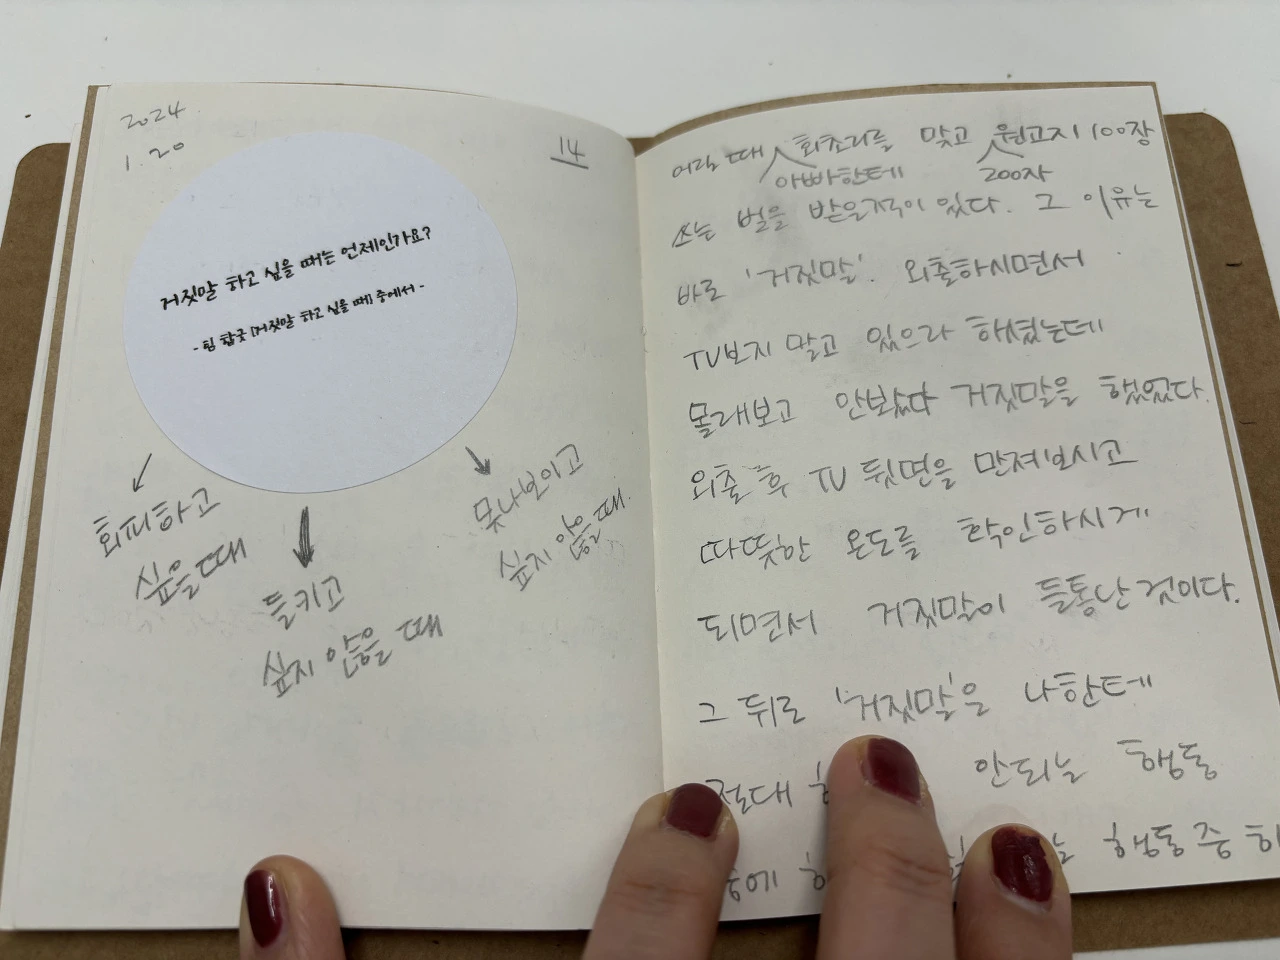 2024.
1.20
14
거짓말 하고 싶을 때는 언제인가요?
- 팀 합굿 [거짓말 하고 싶을 때] 중에서 -
회피하고
싶을 때
들키고
싶지 않을 때
못나보이고
싶지 않을 때.
어릴 때 회초리를 맞고 원고지 100장
아빠한테 200자
쓰는 벌을 받은적이 있다. 그 이유는
바로 '거짓말'. 외출하시면서
TV보지 말고 있으라 하셨는데
몰래보고 안봤다 거짓말을 했었다.
외출 후 TV 뒷면을 만져보시고
따뜻한 온도를 확인하시게
되면서 거짓말이 들통난 것이다.
그 뒤로 '거짓말'은 나한테
절대 안되는 행동
중에 행동 중 하